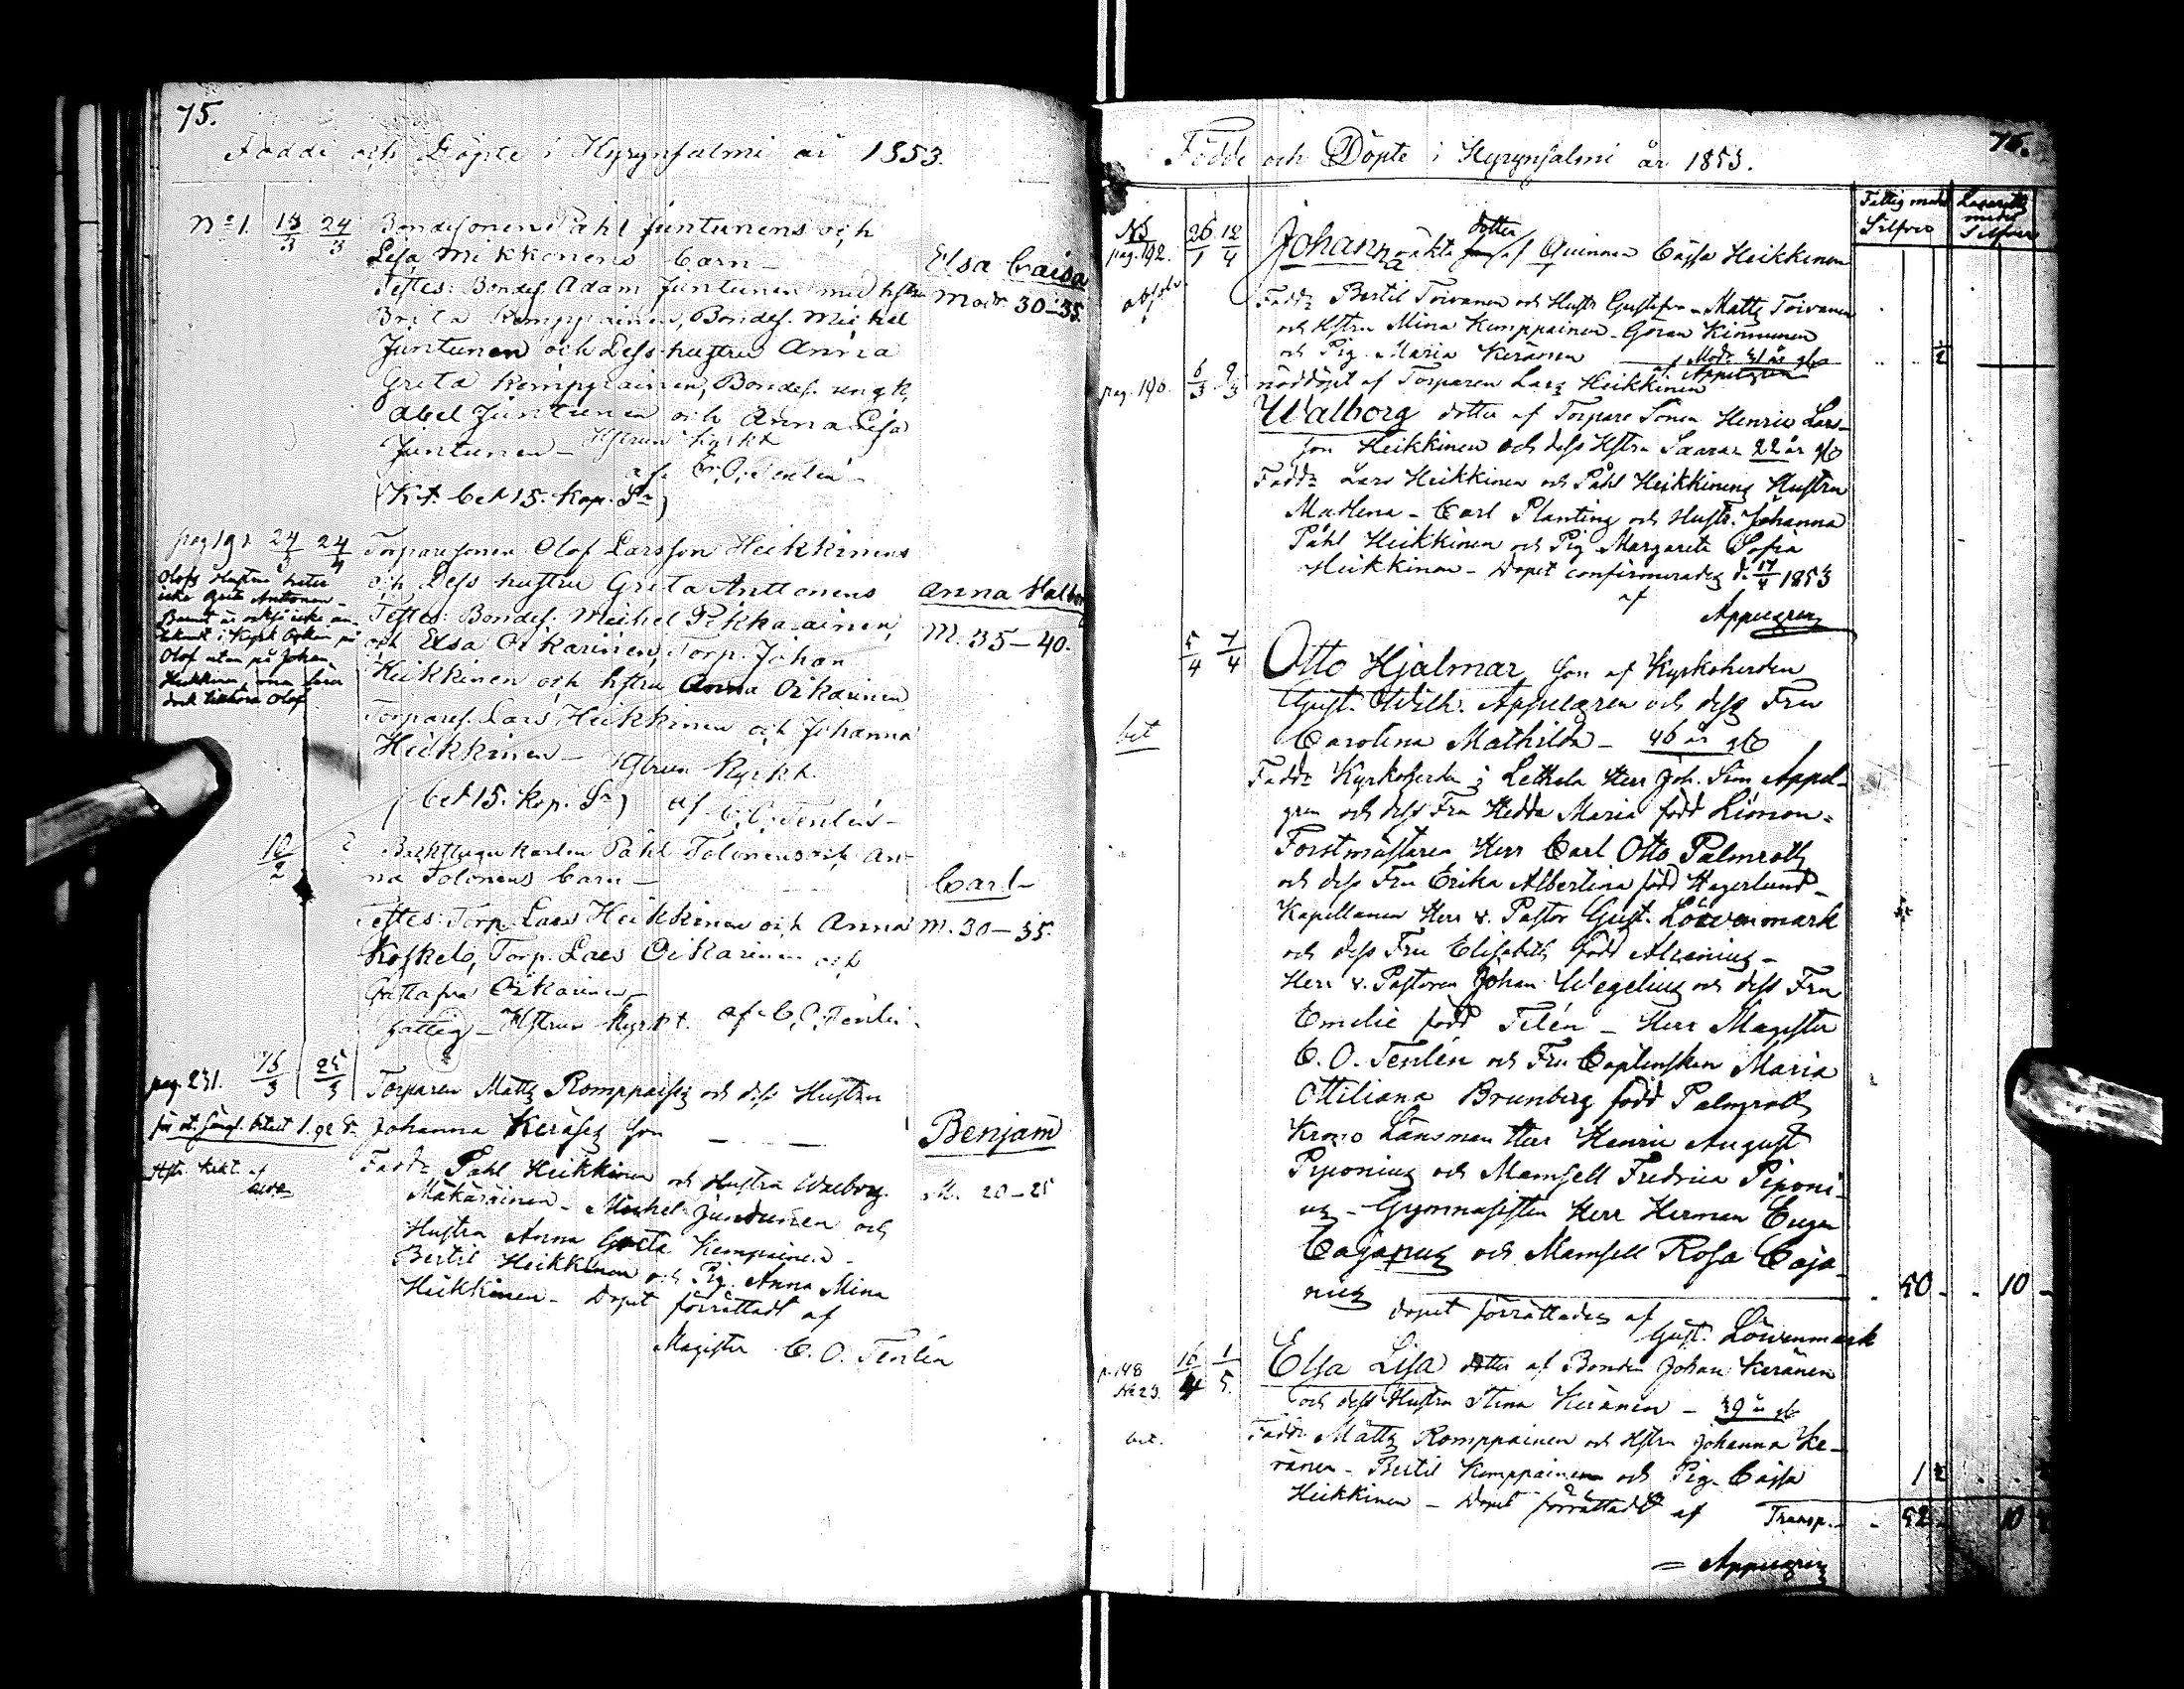 75.
Födde och Döpte i Hyrynsalmi år 1853.
No 1. 13/3 24/3 Bondesonen Påhl Juntunens och
Lisa Mikkonens barn – Elsa Caisa
Testes: Bondes. Adam Juntunen med hstru Modr 30–35.
Brita Kemppainen, Bondes. Mickel
Juntunen och Dess hustru Anna
Greta Kemppainen, Bondes. ungk.
Abel Juntunen och Anna Lisa
Juntunen – Hstrun kyrkt.
af C. O. Tenlén
(Kt. bet 15. kop. Sr)
pag 191 24/3 24/4 Torparesonen Olof Larsson Heikkinens
och Dess hustru Greta Anttonens Anna Walborg
Olofs Hustru heter
icke Greta Anttonen –
Barnet är också icke an-
tecknadt i Kyrk boken på
Olof utan på Johan
Heikkinen, men lärer
dock tillhöra Olof
Testes: Bondes. Mickel Pikkarainen, M. 35–40.
och Elsa Oikarinen, Torp. Johan
Heikkinen och hstru Anna Oikarinen
Torpares. Lars Heikkinen och Johanna
Heikkinen – Hstrun Kyrkt.
(bet 15. kop. Sr) af C. O. Tenlén –
10/2 ? Backstugukarlen Påhl Tolonens och An-
na Tolonens barn – Carl –
Testes: Torp. Lars Heikkinen och Anna M. 30–35.
Koskelo, Torp. Lars Oikarinen och
Gustafva Oikarinen –
fattig – Hstrun kyrkt. af C. O. Tenlén.
pag. 231. 16/3 25/3 Torparen Matts Romppaises och dess Hustru
Johanna Keräses Son – – Benjam
Hstr. kkt. af
Faddr Påhl Heikkinen och Hustru Walborg M. 20–25
Makarainen – Mickel Juntunen och
Hustru Anna Greta Kempainen –
Bertil Heikkinen och Pig. Anna Mina
Heikkinen – Dopet förrättadt af
Magister C. O. Tenlén
76.
Födde och Döpte i Hyrynsalmi år 1853.
Fattig medel Silfver
Lazaretts medel Silfver
N5 pag. 192. 26/1 12/4 Johanna oäkta dotter af Quinnan Cajsa Heikkinen
Faddr Bertil Toivanen och Hustr Gustafva – Matts Toivanen
och Hstru Mina Kemppainen – Göran Kinnunen
och Pig. Maria Keränen – Modr 31 år gl. 1/2
af Appelgren
pag. 190. 6/3 9/3 nöddöpt af Torparen Lars Heikkinen
Walborg dotter af Torpare Sonen Henric Lars-
son Heikkinen och dess Hstru Saara 22 år gl.
Faddr Lars Heikkinen och Påhl Heikkinens Hustru
Madlena – Carl Planting och Hustr. Johanna
Påhl Heikkinen och Pig. Margareta Sofia
Heikkinen – Dopet confirmerades d. 17/4 1853
af
Appelgren
5/4 7/4 Otto Hjalmar Son af Kyrkoherden
Gust. Wilh. Appelgren och dess Fru
bet Carolina Mathilda – 46 år gl.
Faddr Kyrkoherden i Lethala Herr Joh. Sim Appel-
gren och dess Fru Hedda Maria född Limon –
Forstmästaren Herr Carl Otto Palmroth
och dess Fru Erika Albertina född Hagerlund –
Kapellanen Herr v. Pastor Gust. Löwenmark
och dess Fru Elisabeth född Alcenius –
Herr v. Pastoren Johan Wegelius och dess Fru
Emelie född Telén – Herr Magister
C. O. Tenlén och Fru Captenskan Maria
Ottiliana Brunberg född Palmroth
Krono Länsman Herr Henric August
Piponius och Mamsell Fredrica Piponi-
us – Gymnasisten Herr Herman Eugen
Cajanus och Mamsell Rosa Caja-
nus 50 – 10 –
dopet förrättades af
Gust. Löwenmark
p. 148 No 23. 16/4 1/5. Elsa Lisa dotter af Bonden Johan Keränen
och dess Hustru Stina Keränen – 39 år gl.
bet. Faddr Matts Romppainen och Hstru Johanna Ke-
ränen – Bertil Kemppainen och Pig. Cajsa 1 1/2
Heikkinen – Dopet förrättadt af Transp. 52 10
Appelgren